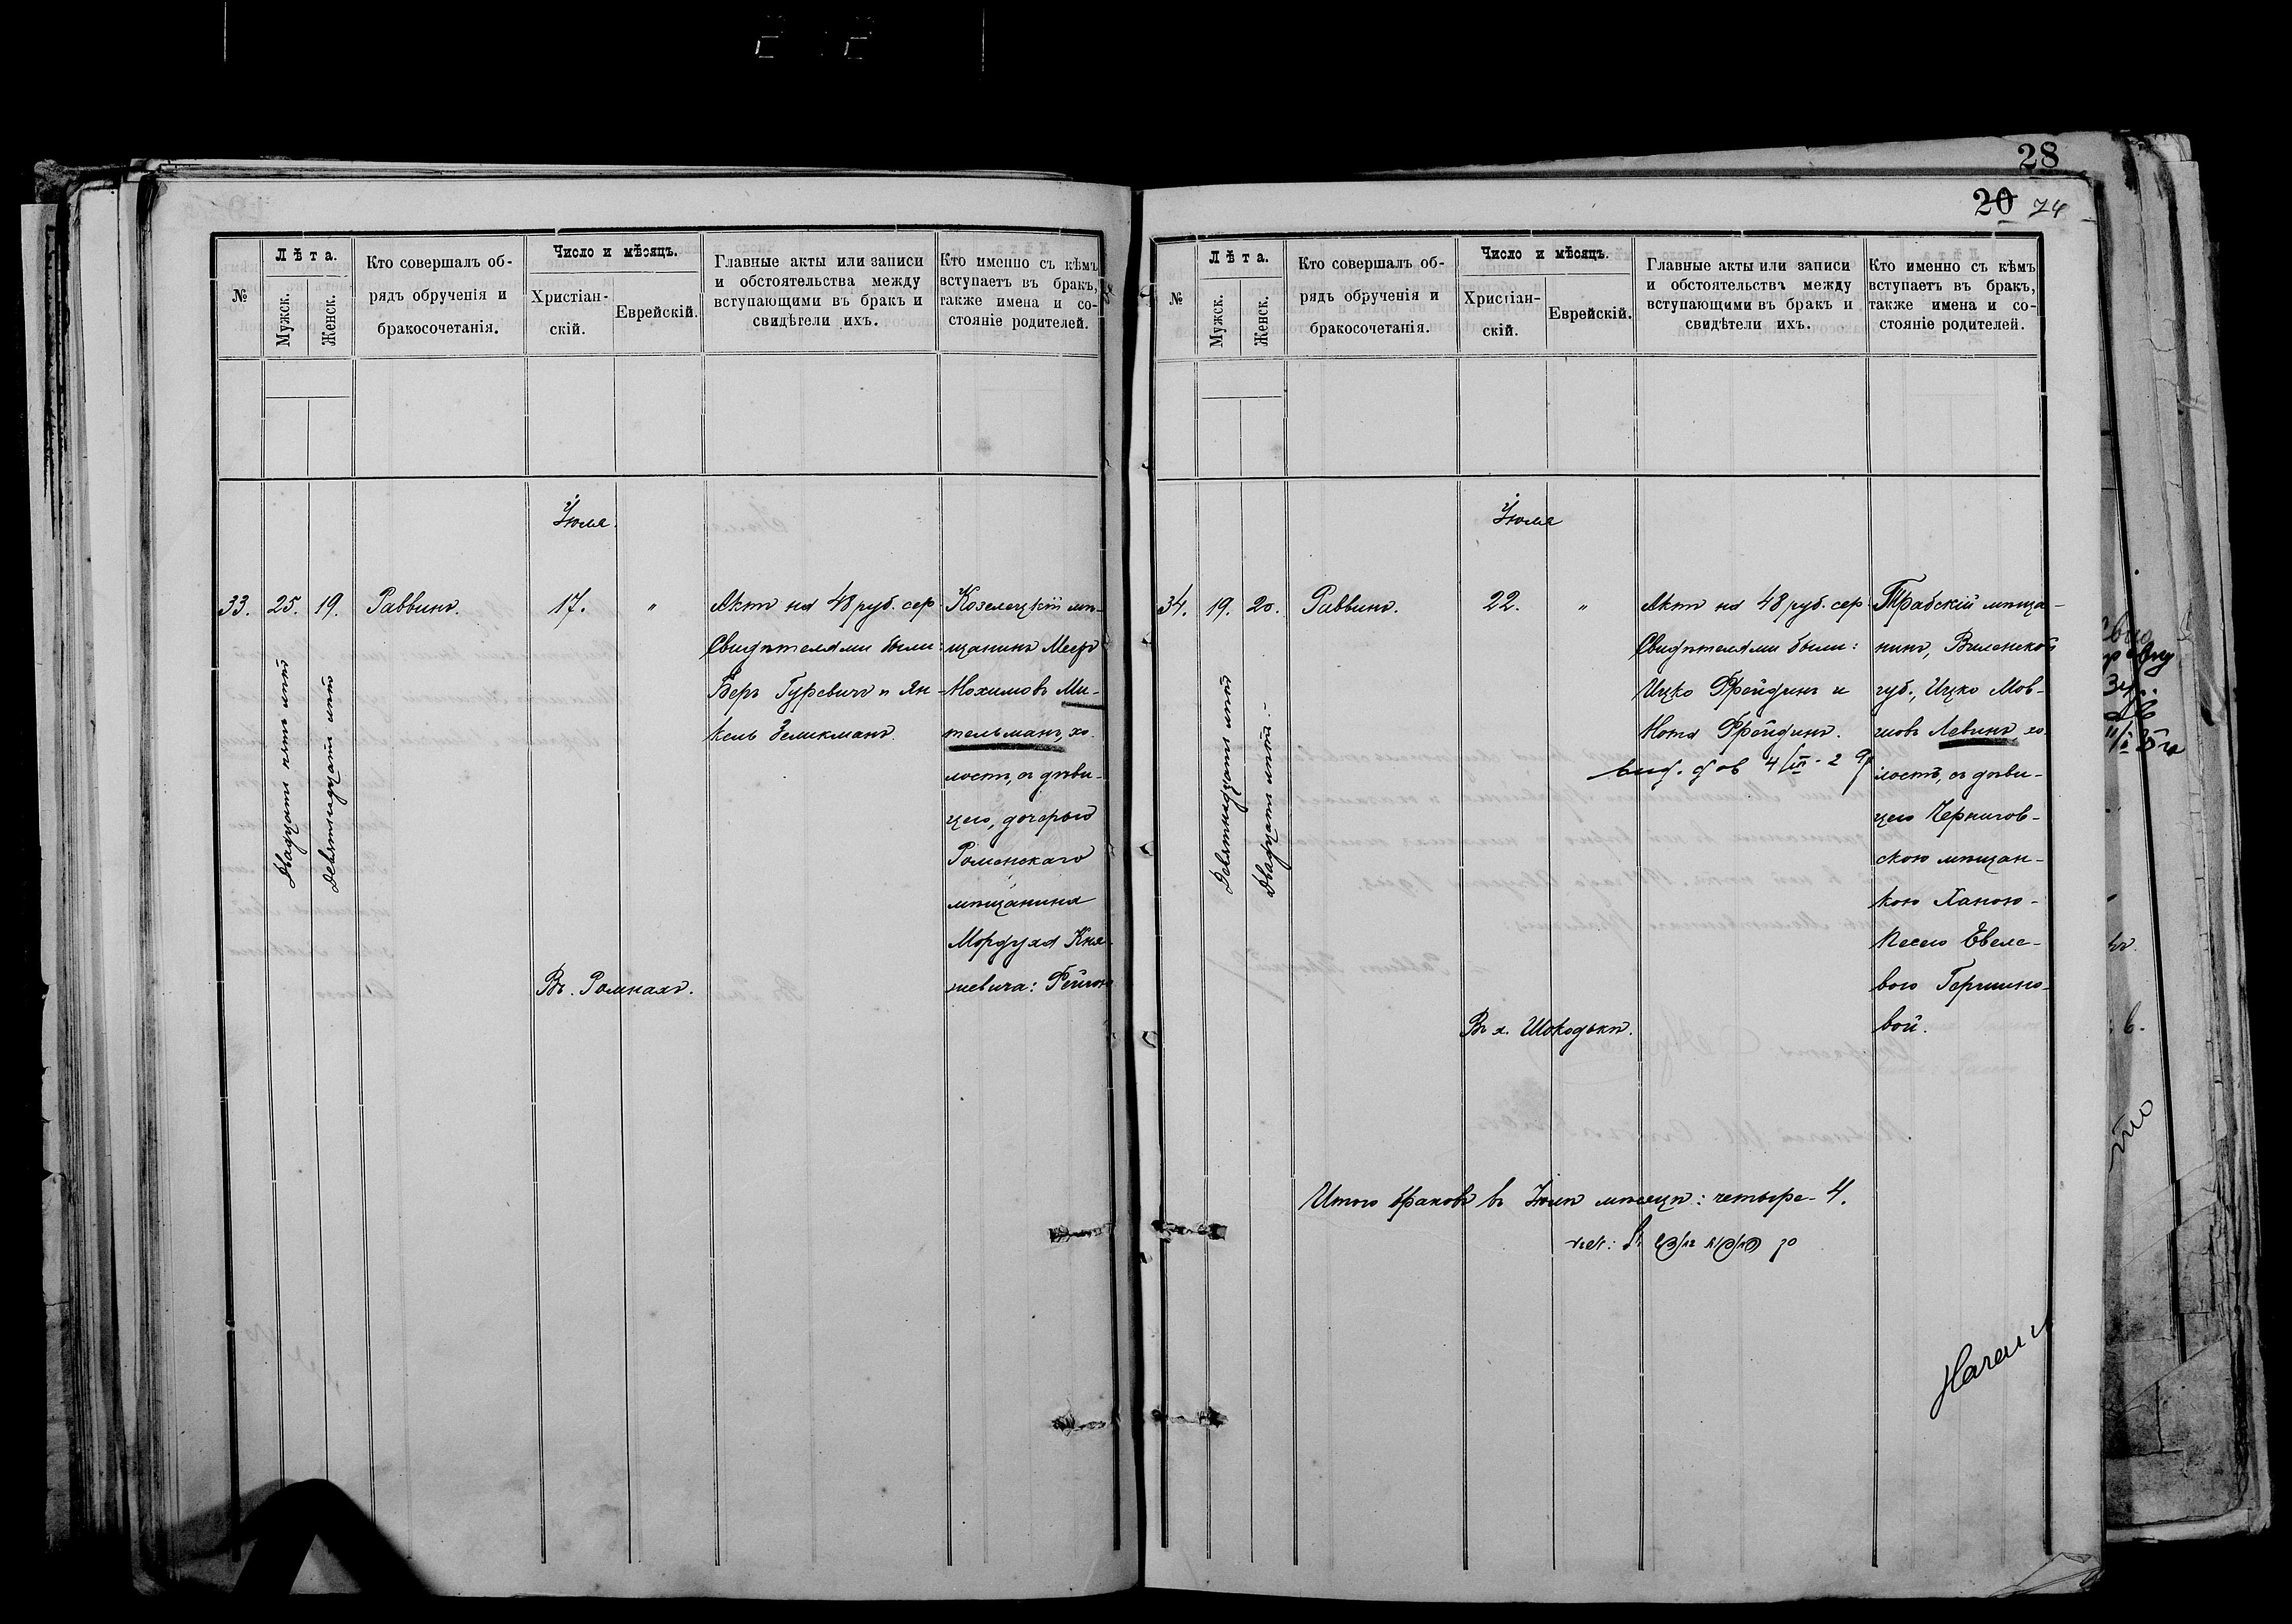 28
20 74
№
Лѣта.
Мужск.
Женск.
Кто совершалъ об-
рядъ обрученія и
бракосочетанія.
Число и мѣсяцъ.
Христіан-
скій.
Еврейскій.
Главные акты или записи
и обстоятельства между
вступающими въ бракъ и
свидѣтели ихъ.
Кто именно съ кѣмъ
вступаетъ въ бракъ,
также имена и со-
стояніе родителей.
Іюля.
33.
25.
Двадцати пяти лѣтъ
19.
Девятнадцати лѣтъ
Раввинъ.
17.
"
Въ Ромнахъ.
Актъ на 48 руб. сер.
Свидѣтелями были:
Беръ Гуревичъ и Ян-
кель Зеликманъ.
Козелецкій мѣ-
щанинъ Мееръ
Нохимовъ Ми-
тельманъ, хо-
лостъ, съ дѣви-
цею, дочерью
Роменскаго
мѣщанина
Мордуха Кня-
жевича: Фейгою
№
Лѣта.
Мужск.
Женск.
Кто совершалъ об-
рядъ обрученія и
бракосочетанія.
Число и мѣсяцъ.
Христіан-
скій.
Еврейскій.
Главные акты или записи
и обстоятельства между
вступающими въ бракъ и
свидѣтели ихъ.
Кто именно съ кѣмъ
вступаетъ въ бракъ,
также имена и со-
стояніе родителей.
Іюля
34.
19.
Девятнадцати лѣтъ
20.
Двадцати лѣтъ.
Раввинъ.
22.
"
Актъ на 48 руб. сер.
Свидѣтелями были:
Ицко Фрейдинъ и
Нота Фрейдинъ.
Трабскій мѣща-
нинъ, Виленской
губ., Ицко Мов-
шовъ Левинъ, хо-
лостъ, съ дѣви-
цею Чернигов-
скою мѣщан-
кою Ханою-
Песею Евеле-
вою Гершно-
вой.
Итого браковъ въ Іюлѣ мѣсяцѣ: четыре - 4.